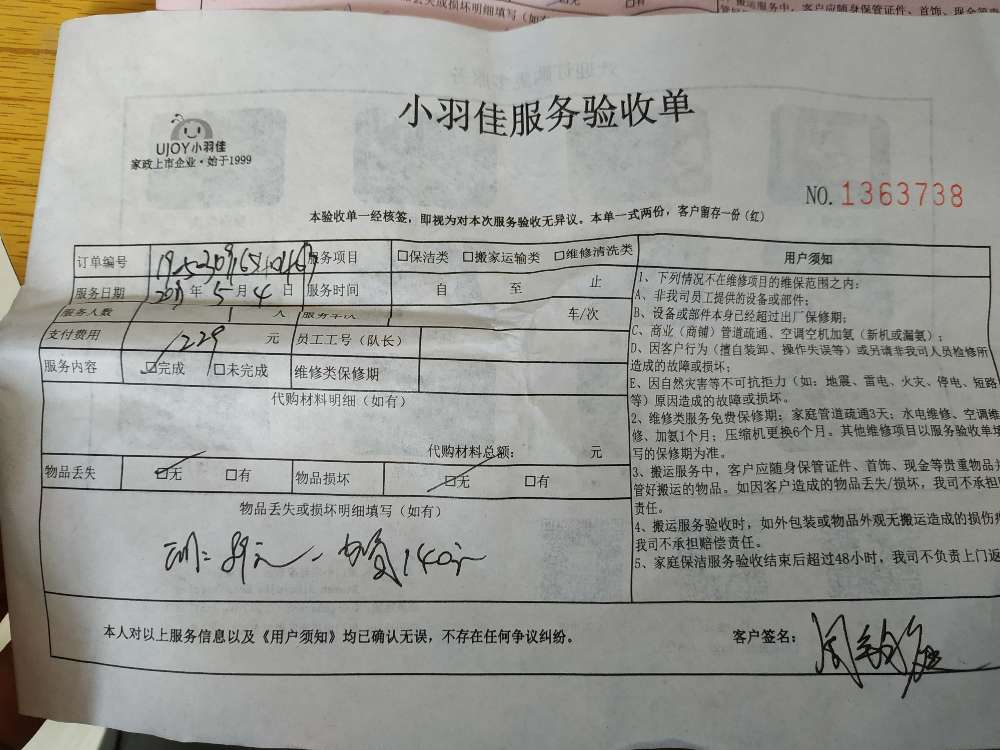 小羽佳服务验收单
UJOY小羽佳
家政上市企业·始于1999
NO. 1363738
本验收单一经核签，即视为对本次服务验收无异议。本单一式两份，客户留存一份（红）
订单编号
服务项目 □保洁类 □搬家运输类 □维修清洗类
服务日期 年 5 月 4 日 服务时间 自 至 止
服务人数 人 服务车次 车/次
支付费用 229 元 员工工号（队长）
服务内容 □完成 □未完成 维修类保修期
代购材料明细（如有）
代购材料总额： 元
物品丢失 □无 □有 物品损坏 □无 □有
物品丢失或损坏明细填写（如有）
89元 140元
用户须知
1、下列情况不在维修项目的维保范围之内：
A、非我司员工提供的设备或部件；
B、设备或部件本身已经超过出厂保修期；
C、商业（商铺）管道疏通、空调空机加氨（新机或漏氨）；
D、因客户行为（擅自装卸、操作失误等）或另请非我司人员检修所
造成的故障或损坏；
E、因自然灾害等不可抗拒力（如：地震、雷电、火灾、停电、短路
等）原因造成的故障或损坏。
2、维修类服务免费保修期：家庭管道疏通3天；水电维修、空调维
修、加氨1个月；压缩机更换6个月。其他维修项目以服务验收单填
写的保修期为准。
3、搬运服务中，客户应随身保管证件、首饰、现金等贵重物品并
管好搬运的物品。如因客户造成的物品丢失/损坏，我司不承担
责任。
4、搬运服务验收时，如外包装或物品外观无搬运造成的损伤痕
我司不承担赔偿责任。
5、家庭保洁服务验收结束后超过48小时，我司不负责上门返
本人对以上服务信息以及《用户须知》均已确认无误，不存在任何争议纠纷。
客户签名：